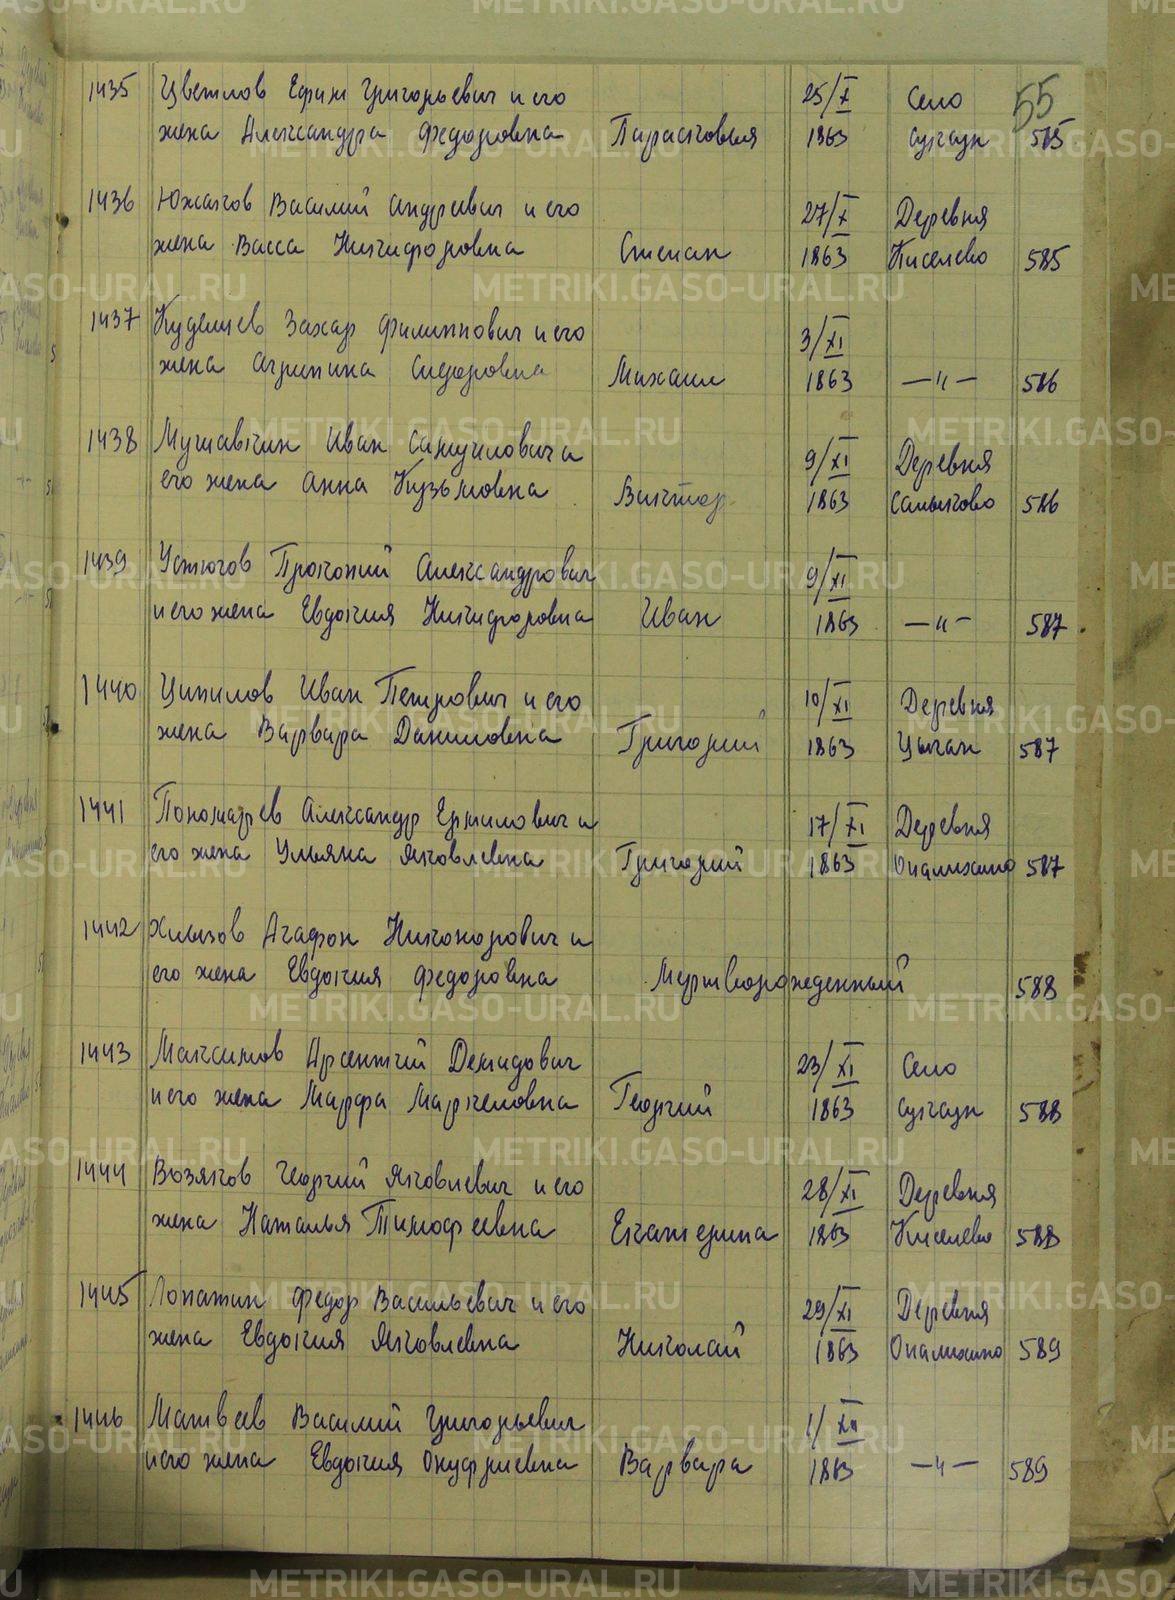 55
1435 Цветлов Ефим Григорьевич и его 25/X Село
жена Александра Федоровна Парасковья 1863 Суксун 585
1436 Южаков Василий Андреевич и его 27/X Деревня
жена Васса Никифоровна Степан 1863 Киселево 585
1437 Куделев Захар Филиппович и его 3/XI
жена Агрипина Сидоровна Михаил 1863 —"— 586
1438 Мушавкин Иван Самуилович и 9/XI Деревня
его жена Анна Кузьмовна Виктор 1863 Сапычово 586
1439 Устюгов Прокопий Александрович 9/XI
и его жена Евдокия Никифоровна Иван 1863 —"— 587
1440 Ципилов Иван Петрович и его 10/XI Деревня
жена Варвара Даниловна Григорий 1863 Цыган 587
1441 Пономарев Александр Ермилович и 17/XI Деревня
его жена Ульяна Яковлевна Григорий 1863 Опалихино 587
1442 Хлызов Агафон Никонорович и
его жена Евдокия Федоровна Мертворожеденный 588
1443 Максимов Арсентий Демидович 23/XI Село
и его жена Марфа Маркеловна Георгий 1863 Суксун 588
1444 Возяков Георгий Яковлевич и его 28/XI Деревня
жена Наталья Тимофеевна Екатерина 1863 Киселево 588
1445 Лопатин Федор Васильевич и его 29/XI Деревня
жена Евдокия Яковлевна Николай 1863 Опалихино 589
1446 Матвеев Василий Григорьевич 1/XII
и его жена Евдокия Онуфриевна Варвара 1863 —"— 589
METRIKI.GASO-URAL.RU